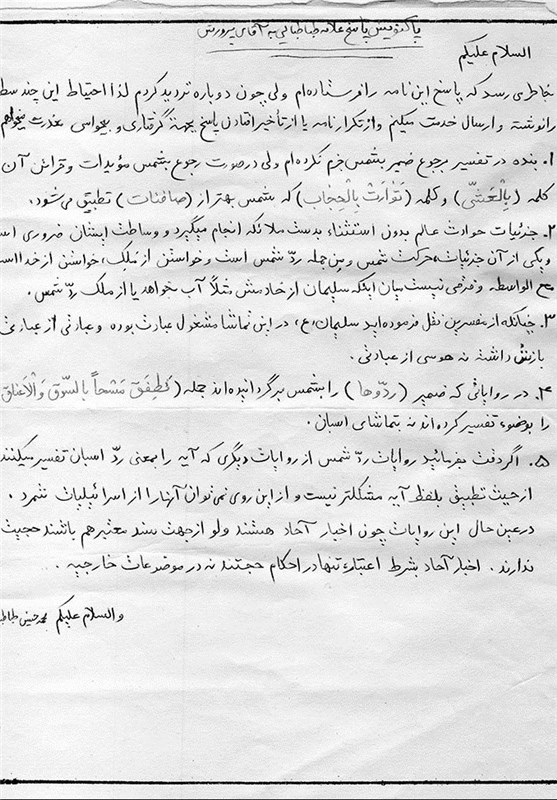 پاکنویس پاسخ علامه طباطبایی به آقای پرورش
السلام علیکم
بخاطر می رسد که پاسخ این نامه را فرستاده ام ولی چون دوباره تردید کردم لذا احتیاط این چند سطر
را نوشته و ارسال خدمت میکنم و از تکرار نامه یا از تأخیر افتادن پاسخ بجهة گرفتاری و بیحواسی معذرت میخواهم
۱. بنده در تفسیر برجوع ضمیر بشمس جزم نکرده ام ولی در صورت رجوع بشمس مؤیدات و قرائن آن
کلمه (بِالْعَشیِّ) و کلمه (تَوٰارَتْ بِالْحِجٰابِ) که شمس بهتر از (صافنات) تطبیق می شود.
۲. جزئیات حوادث عالم بدون استثناء بدست ملائکه انجام میگیرد و وساطت ایشان ضروری است
و یکی از آن جزئیات، حرکت شمس و من جمله ردّ شمس است و خواستن از مَلِک، خواستن از خدا است
مع الواسطه و فرقی نیست میان اینکه سلیمان از خادمش مثلاً آب بخواهد یا از ملک ردّ شمس.
۳. چنانکه از مفسرین نقل فرموده اید سلیمان، ع، در این تماشا مشغول عبادت بوده و عبادتی از عبادتی
بازش داشته نه هوسی از عبادتی.
۴. در روایاتی که ضمیر (ردّوها) را بشمس برگردانیده اند جمله (فَطَفِقَ مَسْحاً بِالسّوقِ وَالْاَعناقِ)
را بوضوء تفسیر کرده اند نه بتماشای اسبان.
۵. اگر دقت بفرمائید روایات ردّ شمس از روایات دیگری که آیه را بمعنی ردّ اسبان تفسیر میکنند
از حیث تطبیق بلفظ آیه مشکلتر نیست و از این روی نمی توان آنها را از اسرائیلیات شمرد.
در عین حال این روایات چون اخبار آحاد هستند ولو از جهت سند معتبر هم باشند حجیت
ندارند. اخبار آحاد بشرط اعتبار، تنها در احکام حجتند نه در موضوعات خارجیه.
والسلام علیکم محمد حسین طباطبا